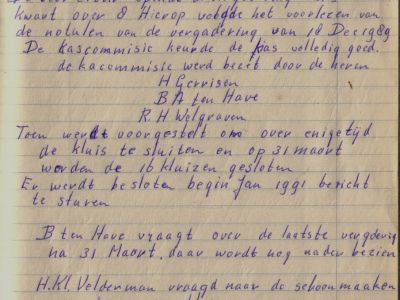 kwart over 8 Hierop volgde het voorlezen van
de notulen van de vergadering van 18 Dec 1989
De kascommisie keurde de kas volledig goed.
de kacommisie werd bezet door de heren
H Gerrisen
B A ten Have
R. H Welgraven
Toen werdt voorgestelt om over enigetijd
de kluis te sluiten en op 31 maart
worden de 16 kluizen gesloten
Er werdt besloten begin Jan 1991 bericht
te sturen
B ten Have vraagt over de laatste vergdering
na 31 Maart, daar wordt nog nader bezien
H. Kl. Velderman vraagd naar de schoonmaaken